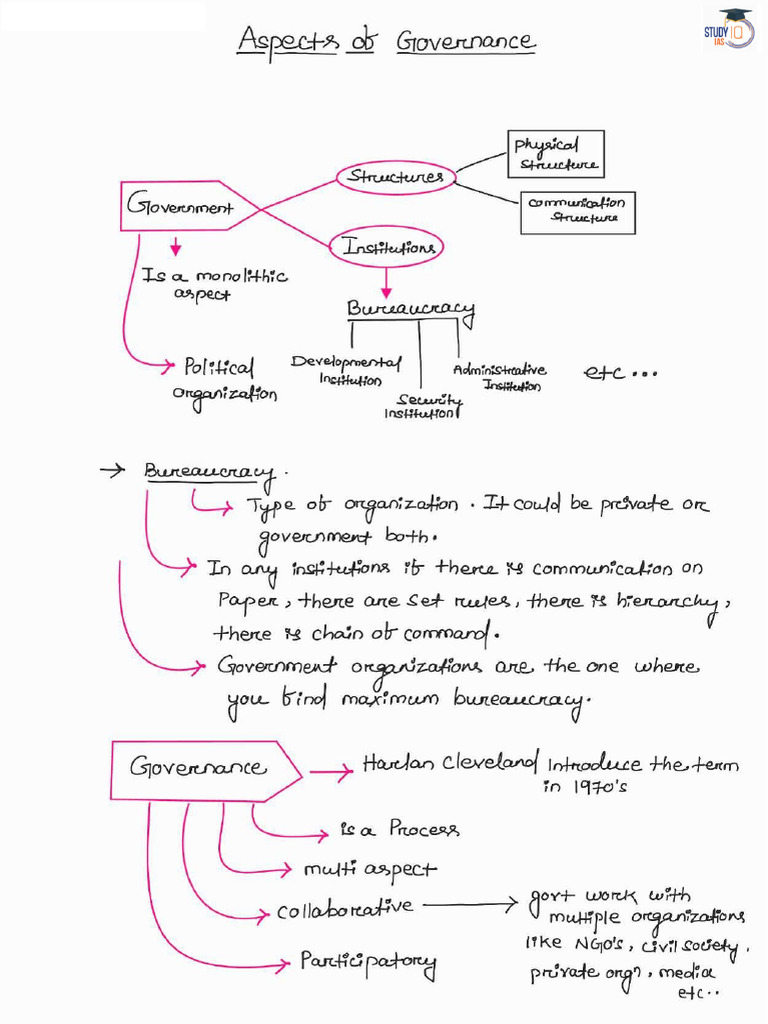 STUDY IQ
IAS
Aspects of Governance
Physical
Structure
Structures
Communication
Structure
Government
Institutions
Is a monolithic
aspect
Bureaucracy
Political
organization
Developmental
Institution
Security
Institution
Administrative
Institution
etc...
→ Bureaucracy.
Type of organization. It could be private or
government both.
In any institutions if there is communication on
Paper, there are set rules, there is hierarchy,
there is chain of command.
Government organizations are the one where
you find maximum bureaucracy.
Governance
Harlan Cleveland Introduce the term
in 1970's
is a Process
multi aspect
collaborative
govt work with
multiple organizations
like NGO's, civil society,
private orgn, media
etc..
Participatory